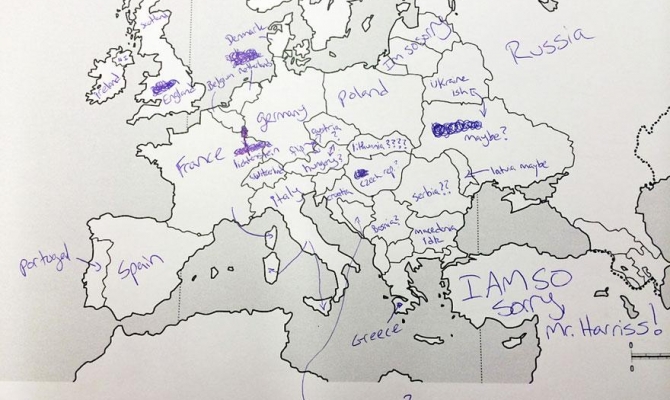 Scotland
Denmark
Im sosorry
Russia
Ireland
England
Belgium
Netherlands
Ukraine
ish
Poland
germany
maybe?
France
lichtenstein
lithuania????
hungery?
Czech rep?
latvia maybe
Italy
Croatia
Serbia??
Bosnia?
macedonia
idk
portugal
Spain
?
I AM SO
Sorry,
Mr. Harriss!
Greece
?